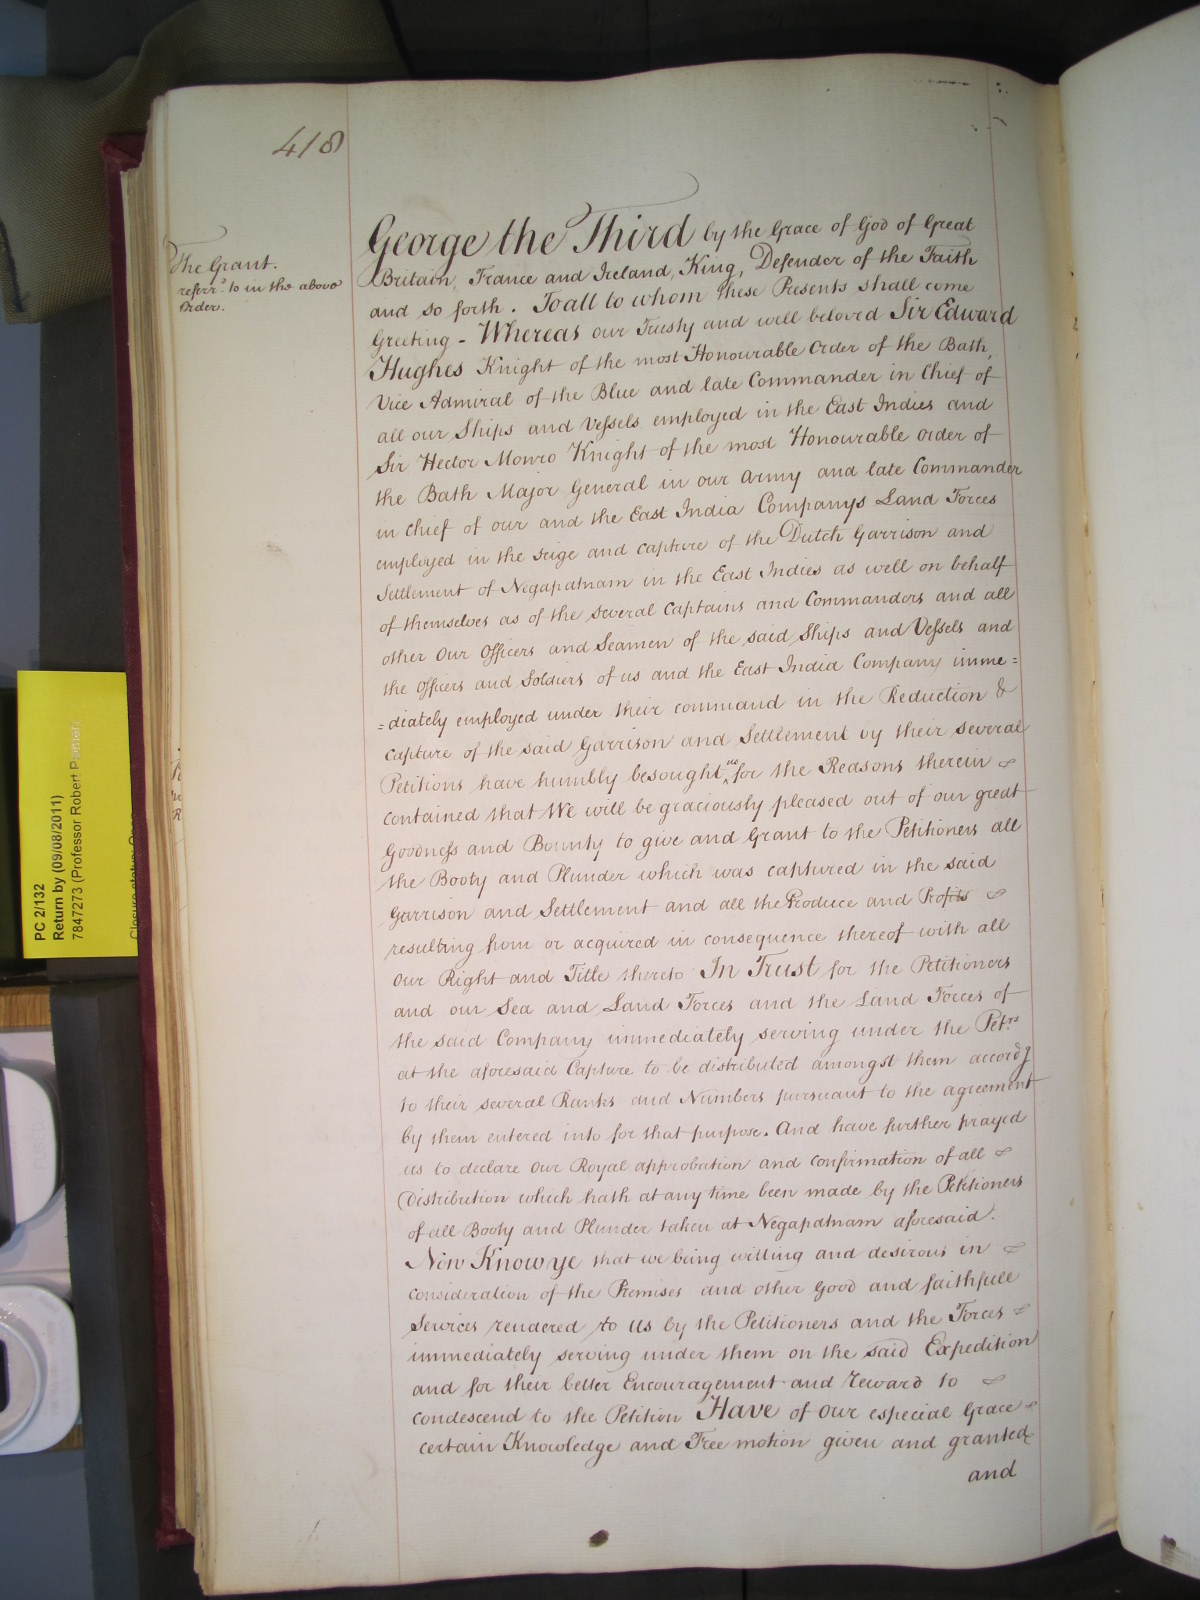 418
The Grant.
referr'd to in the above
Order.
George the Third by the Grace of God of Great
Britain, France and Ireland, King, Defender of the Faith
and so forth. To all to whom these Presents shall come
Greeting - Whereas our Trusty and well beloved Sir Edward
Hughes Knight of the most Honourable Order of the Bath,
Vice Admiral of the Blue and late Commander in Chief of
all our Ships and Vessels employed in the East Indies and
Sir Hector Monro Knight of the most Honourable order of
the Bath Major General in our Army and late Commander
in Chief of our and the East India Companys Land Forces
employed in the seige and capture of the Dutch Garrison and
Settlement of Negapatnam in the East Indies as well on behalf
of themselves as of the several Captains and Commanders and all
other our Officers and Seamen of the said Ships and Vessels and
the Officers and Soldiers of us and the East India Company imme=
=diately employed under their command in the Reduction &
capture of the said Garrison and Settlement by their several
Petitions have humbly besought us for the Reasons therein
contained that We will be graciously pleased out of our great
Goodness and Bounty to give and Grant to the Petitioners all
the Booty and Plunder which was captured in the said
Garrison and Settlement and all the Produce and Profits
resulting from or acquired in consequence thereof with all
our Right and Title thereto In Trust for the Petitioners
and our Sea and Land Forces and the Land Forces of
the said Company immediately serving under the Petrs
at the aforesaid Capture to be distributed amongst them accordg
to their several Ranks and Numbers pursuant to the agreement
by them entered into for that purpose. And have further prayed
us to declare our Royal approbation and confirmation of all
Distribution which hath at any time been made by the Petitioners
of all Booty and Plunder taken at Negapatnam aforesaid.
Now Know ye that we being willing and desirous in
consideration of the Premises and other Good and faithfull
Services rendered to us by the Petitioners and the Forces
immediately serving under them on the said Expedition
and for their better Encouragement and Reward to
condescend to the Petition Have of our especial Grace
certain Knowledge and Free motion given and granted
and
PC 2/132
Return by (09/08/2011)
7847273 (Professor Robert
Closure status: